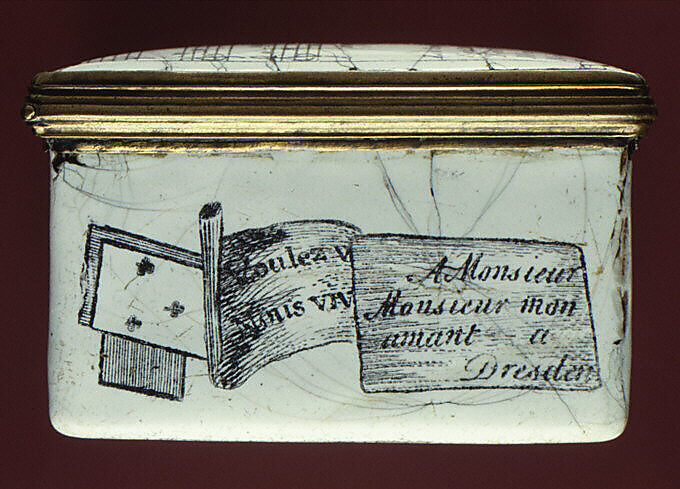 Voulez V
VIV
A Monsieur
Monsieur mon
amant a
Dresden